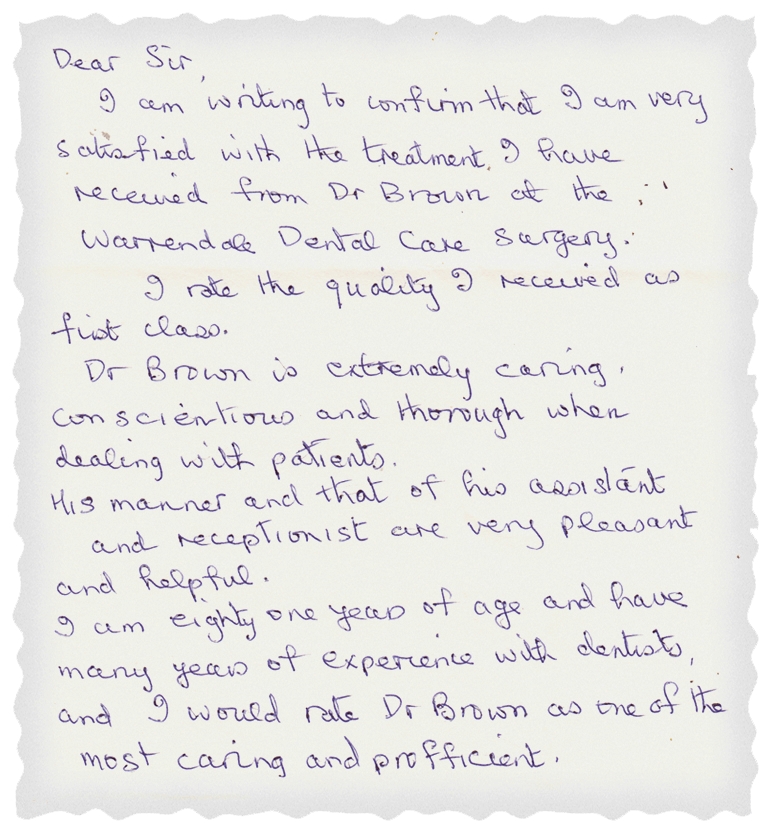 Dear Sir,
I am writing to confirm that I am very
satisfied with the treatment I have
received from Dr Brown at the
Warrendale Dental Care Surgery.
I rate the quality I received as
first class.
Dr Brown is extremely caring,
conscientious and thorough when
dealing with patients.
His manner and that of his assistant
and receptionist are very pleasant
and helpful.
I am eighty one years of age and have
many years of experience with dentists,
and I would rate Dr Brown as one of the
most caring and profficient.